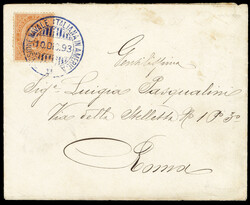 NAVALE ITALIANA IN AMERICA
10. DIC. 93
Gentilissima
Sig.ª Luigia Pasqualini
Via della Stelletta N 1 P 3º
Roma